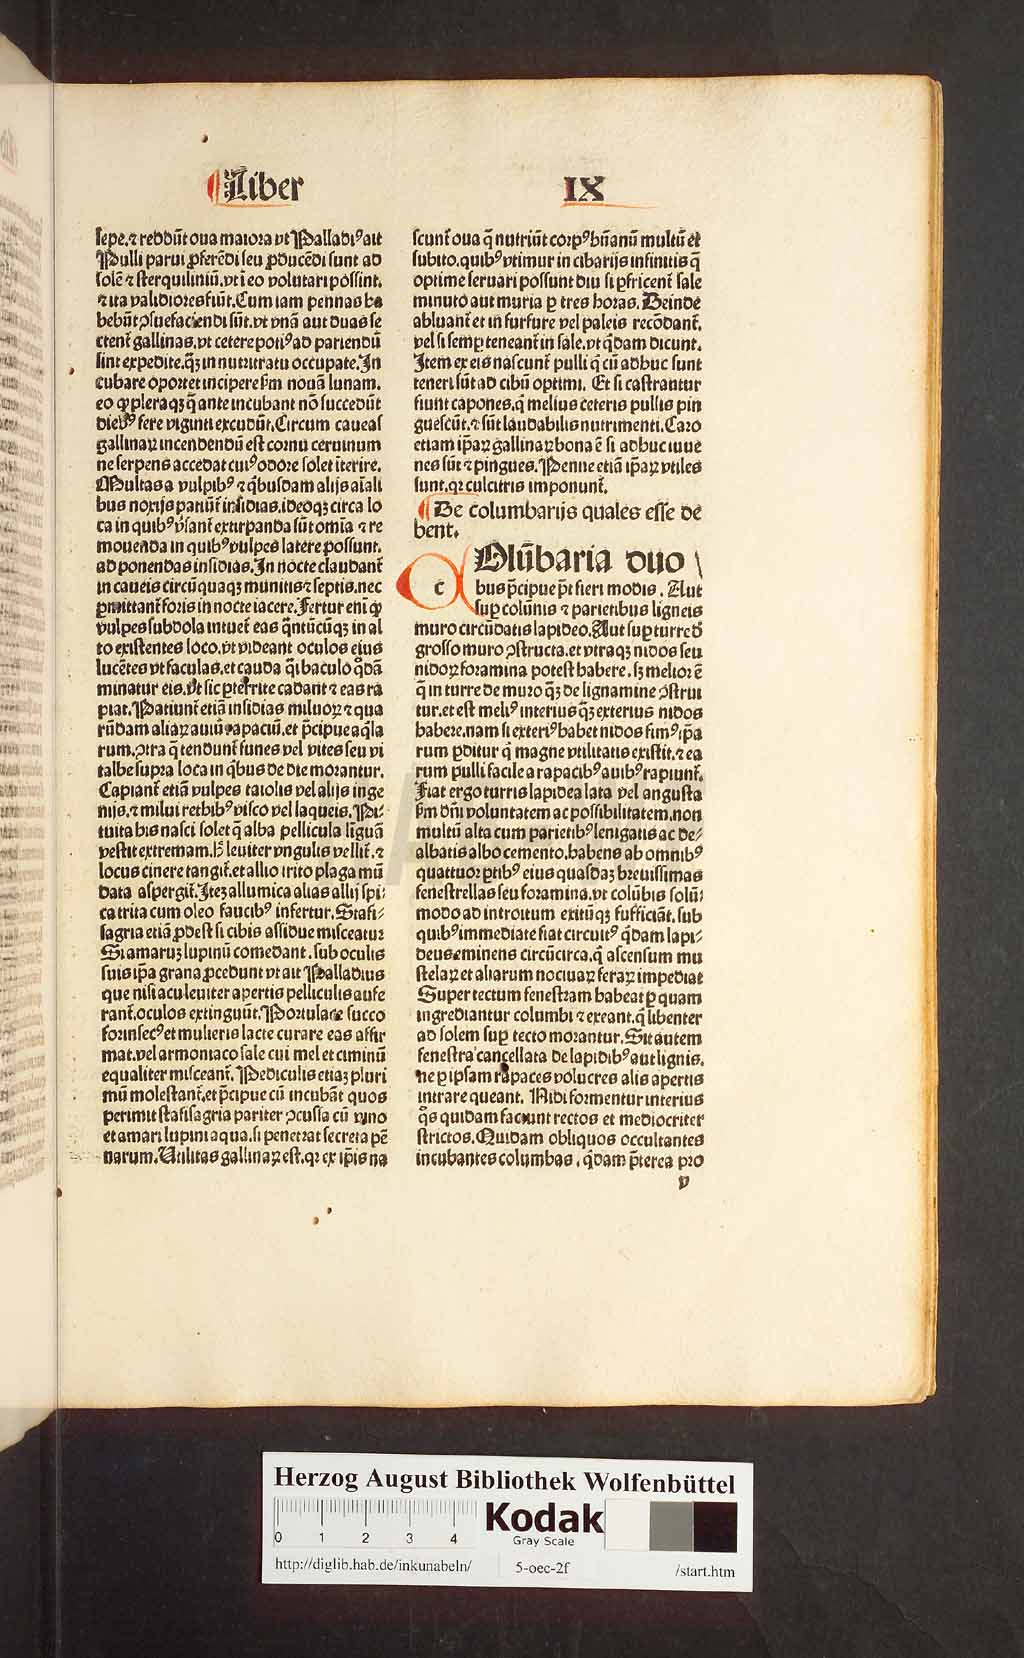 Liber IX
sepe.⁊ reddūt oua maiora vt Palladiꝰ ait
Pulli parui ꝓferēdi seu ꝓducēdi sunt ad
solē ⁊ sterquiliniū.vt ī eo volutari possint.
⁊ ita validiores fiūt.Cum iam pennas ha
bebūt ꝯsuefaciendi sūt.vt vnā aut duas se
ctent̄ gallinas.vt cetere potiꝰ ad pariendū
sint expedite.q̄ꝫ in nutritratu occupate.In
cubare oportet incipere ẜm nouā lunam.
eo ꝙ pleraqꝫ q̄ ante incubant nō succedūt
diebꝰ fere viginti excudūt.Circum caueas
gallinaꝝ incendendū est cornu ceruinum
ne serpens accedat cuiꝰ odore solet īterire.
Multas a vulpibꝰ ⁊ q̇busdam alijs aīali
bus noxijs patiunt̄ insidias.ideoqꝫ circa lo
ca in quibꝰ v̓sant̄ extirpanda sūt omīa ⁊ re
mouenda in quibꝰ vulpes latere possunt.
ad ponendas insidias.In nocte claudant̄
in caueis circūquaqꝫ munitis ⁊ septis.nec
ꝑmittant̄ foris in nocte iacere.Fertur eni ꝙ
vulpes subdola intuet̄ eas q̄ntūcūqꝫ in al
to existentes loco.vt videant oculos eius
lucētes vt faculas.et cauda q̄i baculo q̇dā
minatur eis.vt sic ꝑterrite cadant ⁊ eas ra
piat.Patiunt̄ etiā insidias miluoꝝ ⁊ qua
rūdam aliaꝝ auiū rapaciū.et p̄cipue aq̇la
rum.ꝯtra q̄ tendunt̄ funes vel vites seu vi
talbe supra loca in q̇bus de die morantur.
Capiant̄ etiā vulpes taiolis vel alijs inge
nijs.⁊ milui rethibꝰ visco vel laqueis.Pi-
tuita his nasci solet q̄ alba pellicula līguā
vestit extremam.h̄ leuiter vngulis vellit̄.⁊
locus cinere tangit̄.et allio trito plaga mū
data aspergit̄.Iteꝫ allumica alias allij spi-
ca trita cum oleo faucibꝰ infertur.Stafi-
sagria etiā ꝓdest si cibis assidue misceatur
Si amaruꝫ lupinū comedant.sub oculis
suis ip̄a grana ꝓcedunt vt ait Palladius
que nisi acu leuiter apertis pelliculis aufe
rant̄.oculos extinguūt.Portulace succo
forinsecꝰ et mulieris lacte curare eas affir
mat.vel armoniaco sale cui mel et ciminū
equaliter misceant̄. Pediculis etiaꝫ pluri
mū molestant̄.et p̄cipue cū incubāt quos
perimit stafisagria pariter ꝯcussa cū vino
et amari lupini aqua.si penetrat secreta pē
narum.Utilitas gallinaꝝ est.qꝛ ex ip̄is na
scunt̄ oua q̄ nutriūt corpꝰ hūanū multū et
subito.quibꝰ vtimur in cibarijs infinitis q̄
optime seruari possunt diu si ꝑfricent̄ sale
minuto aut muria ꝑ tres horas. Deinde
abluant̄ et in furfure vel paleis recōdant̄.
vel si semꝑ teneant̄ in sale.vt q̇dam dicunt.
Item ex eis nascunt̄ pulli q̇ cū adhuc sunt
teneri sūt ad cibū optimi. Et si castrantur
fiunt capones.q̇ melius ceteris pullis pin
guescūt.⁊ sūt laudabilis nutrimenti.Caro
etiam ip̄aꝝ gallinaꝝ bona ē si adhuc iuue
nes sūt ⁊ pingues.Penne etiā ip̄aꝝ vtiles
sunt.qꝛ culcitris imponunt̄.
De columbarijs quales esse de
bent.
c Olūbaria duo
bus p̄cipue p̄t fieri modis. Aut
suꝑ colūnis ⁊ parietibus ligneis
muro circūdatis lapideo.Aut suꝑ turre d̓
grosso muro ꝯstructa.et vtraqꝫ nidos seu
nidoꝝ foramina potest habere.sꝫ melior ē
q̄ in turre de muro q̄ꝫ de lignamine ꝯstrui
tur.et est meliꝰ interius q̄ꝫ exterius nidos
habere.nam si exteriꝰ habet nidos fimꝰ ip̄a
rum ꝑditur q̇ magne vtilitatis existit.⁊ ea
rum pulli facile a rapacibꝰ auibꝰ rapiunt̄.
Fiat ergo turris lapidea lata vel angusta
ẜm dn̄i voluntatem ac possibilitatem.non
multū alta cum parietibꝰ leuigatis ac de-
albatis albo cemento.habens ab omnibꝰ
quattuor ꝑtibꝰ eius quasdaꝫ breuissimas
fenestrellas seu foramina.vt colūbis solū-
modo ad introitum exitūqꝫ sufficiāt.sub
quibꝰ immediate fiat circuitꝰ q̇dam lapi-
deus eminens circūcirca.q̇ ascensum mu
stelaꝝ et aliarum nociuaꝝ feraꝝ impediat
Super tectum fenestram habeat ꝑ quam
ingrediantur columbi ⁊ exeant.q̇ libenter
ad solem suꝑ tecto morantur.Sit autem
fenestra cancellata de lapidibꝰ aut lignis.
ne ꝑ ipsam rapaces volucres alis apertis
intrare queant. Nidi formentur interius
q̇s quidam faciunt rectos et mediocriter
strictos.Quidam obliquos occultantes
incubantes columbas. q̇dam p̄terea pro
v
Herzog August Bibliothek Wolfenbüttel
0 1 2 3 4
Kodak
Gray Scale
http://diglib.hab.de/inkunabeln/ 5-oec-2f /start.htm